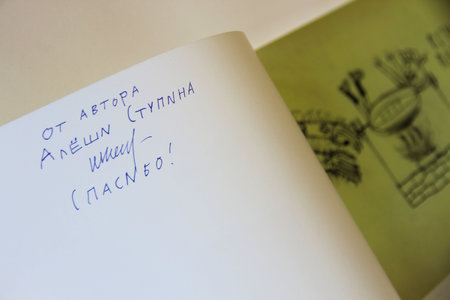 ОТ АВТОРА
АЛЁШИ СТУПИНА
СПАСИБО!